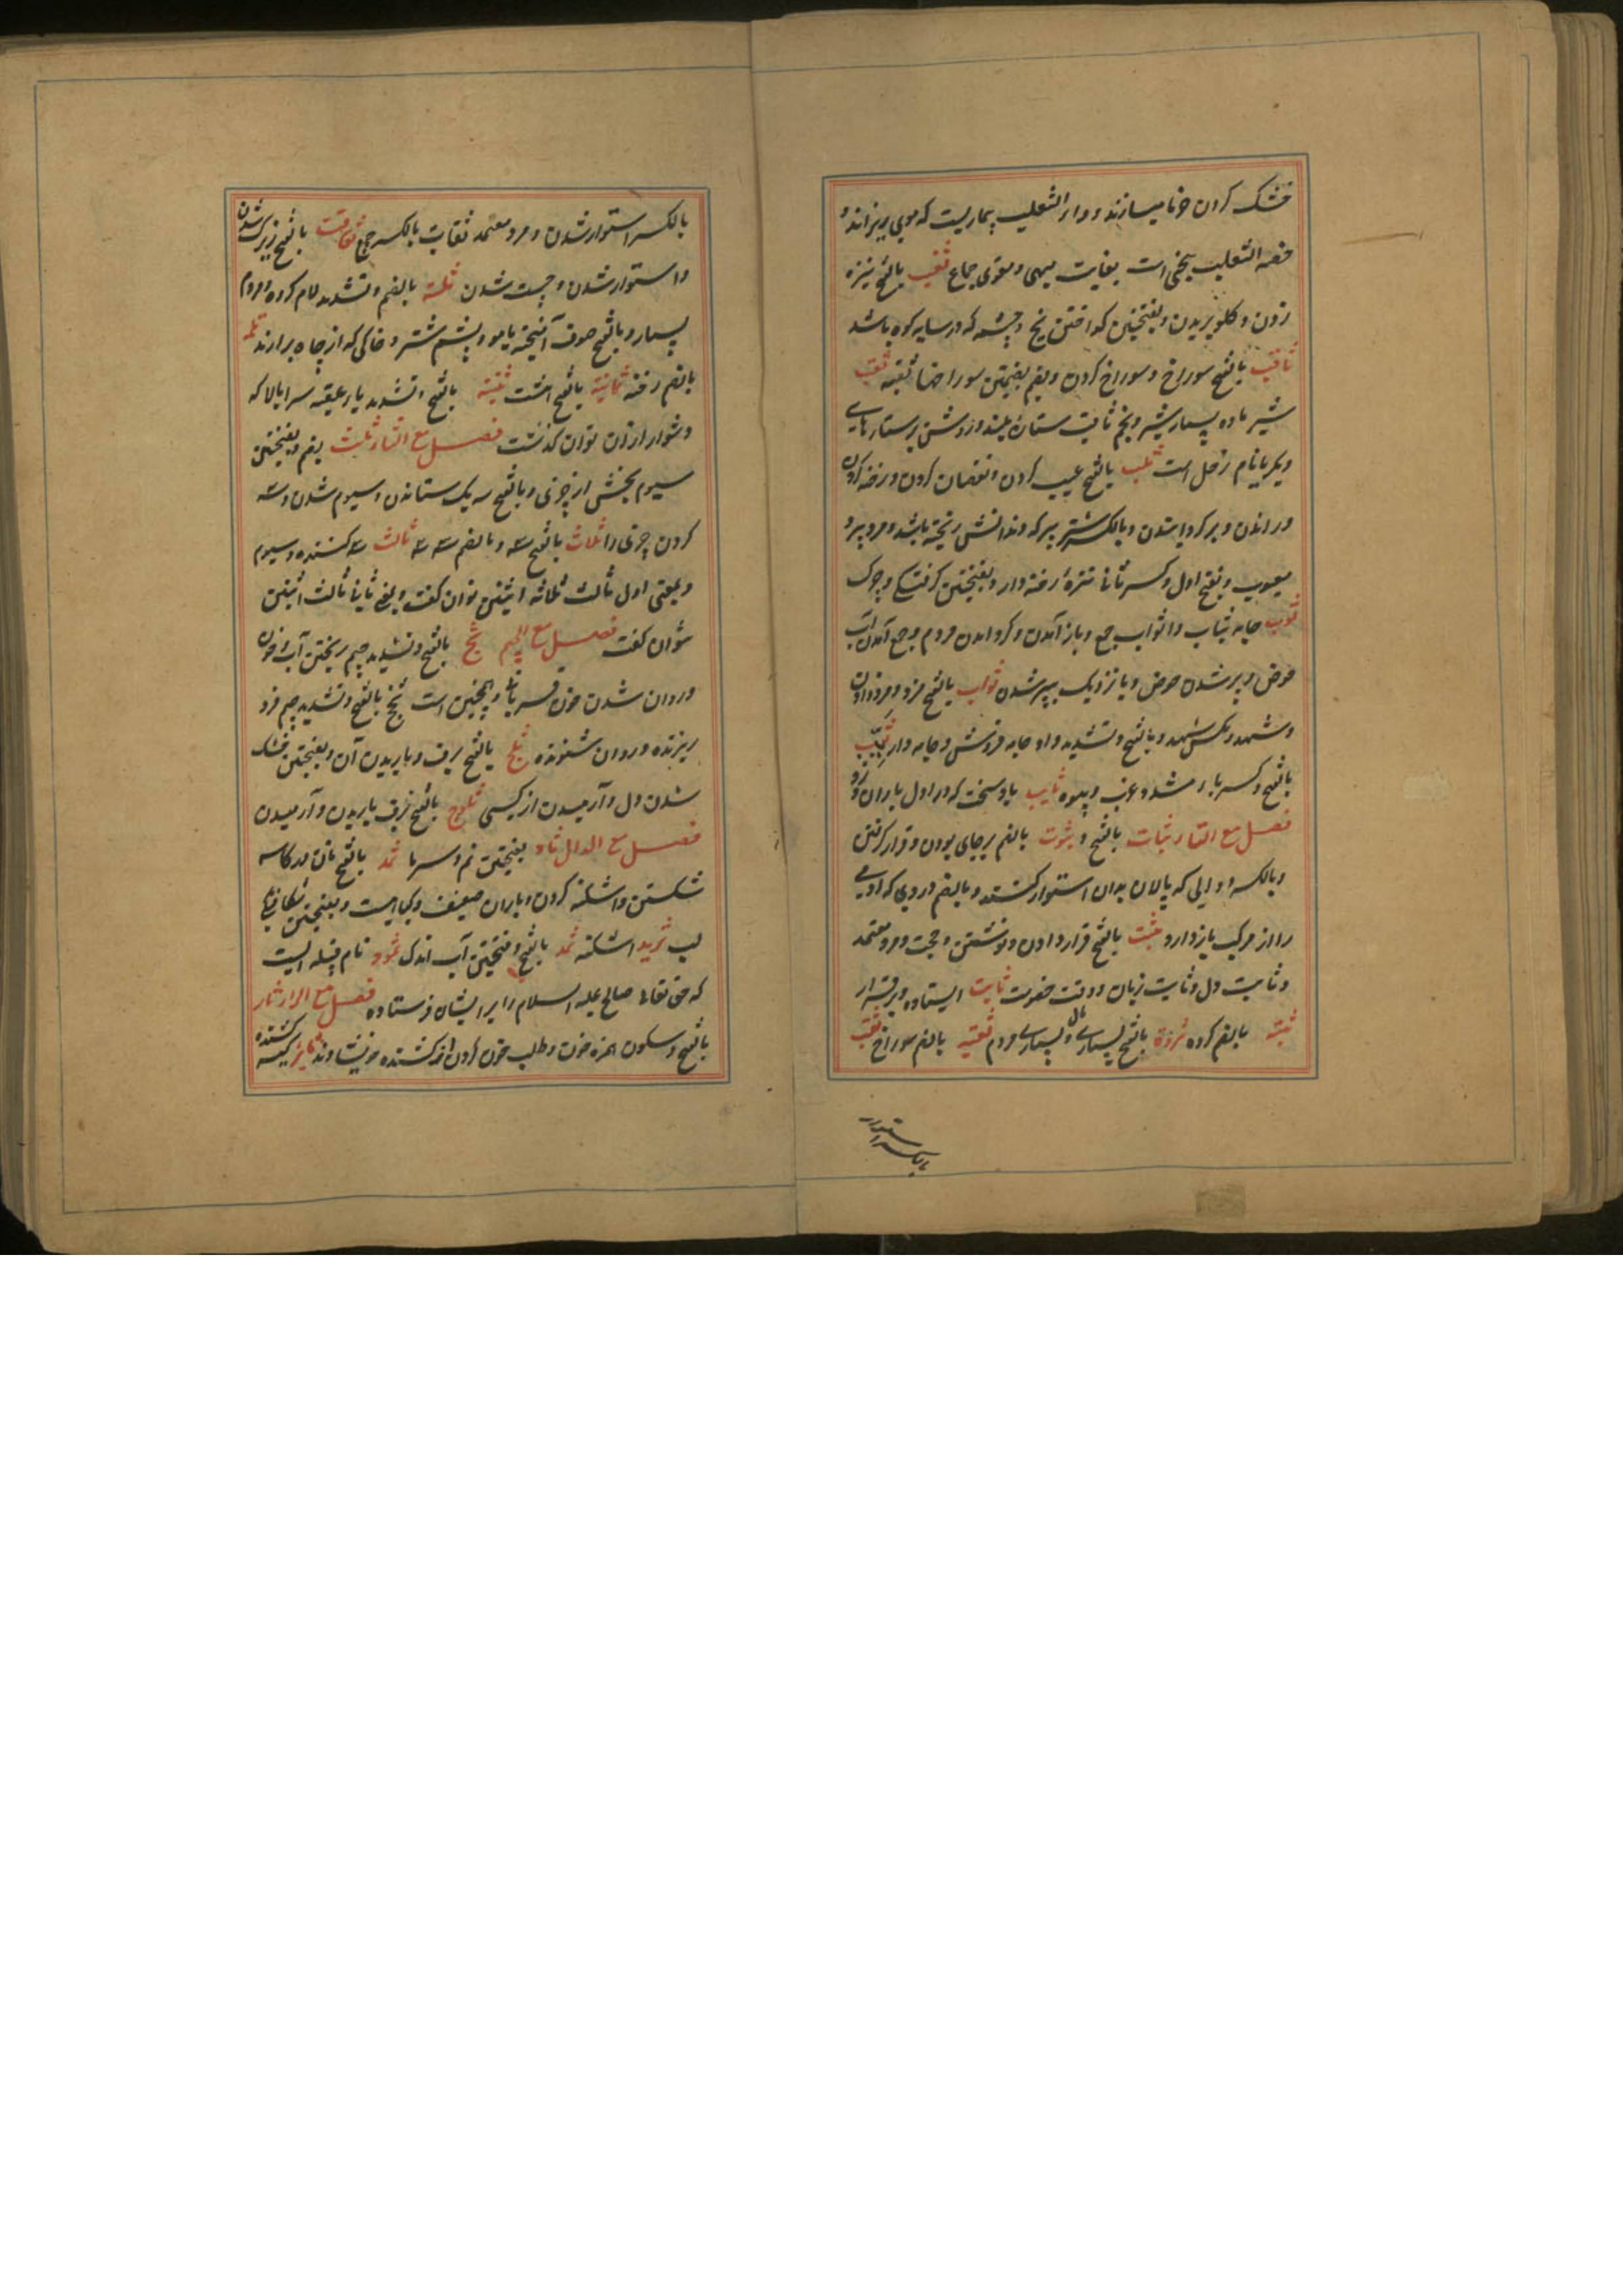 خشک کردن خرما میسازند و داء الثعلب بیماریست که موی بریزاند و
خصیه الثعلب بیخی است بغایت مبهی و مقوی جماع ثغب بالفتح نیزه
زدن و گلو بریدن و بفتحتین گداختن یخ و چشمه که در سایه کوه باشد
ثاقب بالفتح سوراخ و سوراخ کردن و بضم بضمتین سوراخها ثقبه ثقیب
شیر ماده بسیار شیر و نجم ثاقب ستاره بلند و روشن بر ستارهای
دیگر یا نام زحل است ثلب بالفتح عیب کردن و نقصان کردن و رخنه کردن
و راندن و برگردانیدن و بالکسر شتر پیر که دندانش ریخته باشد و مرد پیر و
معیوب و بفتح اول و کسر ثانی نیزه رخنه دار و بفتحتین گرفتگی و چرک
ثوب جامه ثیاب و اثواب جمع و باز آمدن و گرد آمدن مردم و جمع آمدن آب
حوض و پر شدن حوض و یا نزدیک بپر شدن ثواب بالفتح مزد و مزد دادن
و شهد و مگس شهد و بالفتح و تشدید واو جامه فروش و جامه دار ثیب
بالفتح و کسر یاء مشدد عزب و بیوه ثایب باد سخت که در اول باران وزد
فصل مع التاء ثبات بالفتح و ثبوت بالضم برجای بودن و قرار گرفتن
و بالکسر دوالی که پالان بدان استوار کنند و بالضم دردی که آدمی
را از حرکت باز دارد ثبت بالفتح قرار دادن و نوشتن و حجت و مرد معتمد
و ثابت دل و ثابت زبان در وقت خصومت ثابت ایستاده و برقرار
ثبة بالضم گروه ثروة بالفتح بسیاری مال و بسیاری مردم ثقبة بالضم سوراخ ثقة
بالکسر استوار
بالکسر استوار شدن و مرد معتمد ثقات بالکسر جمع ثقافت بالفتح زیرک شدن
و استوار شدن و چست شدن ثلة بالضم و تشدید لام گروه مردم
بسیار و بالفتح صوف آمیخته با مو و پشم شتر و خاکی که از چاه برارند ثلمة
بالضم رخنه ثمانیة بالفتح هشت ثنیة بالفتح و تشدید یاء عقبه سر بالا که
دشوار از آن توان گذشت فصل مع الثاء ثلث بضم و بضمتین
سیوم بخش از چیزی و بالفتح سه یک ستاندن و سیوم شدن و سه
کردن چیزی را ثلاث بالفتح سه و بالضم سه سه ثالث سه کننده و سیوم
و بمعنی اول ثالث ثلاثه و اثنین توان گفت و بمعنی ثانی ثالث اثنین
نتوان گفت فصل مع الجیم ثج بالفتح و تشدید جیم ریختن آب و خون
و روان شدن خون قربانی و همچنین است ثجج بالفتح و تشدید جیم فرو
ریزنده و روان شونده ثلج بالفتح برف و باریدن آن و بفتحتین خنک
شدن دل و آرمیدن از کسی ثلوج بالفتح برف باریدن و آرمیدن
فصل مع الدال ثاد بفتحتین نم و سرما ثرد بالفتح نان در کاسه
شکستن و اشکنه کردن و باران ضعیف و گیاهیست و بفتحتین شکافتگی
لب ثرید اشکنه ثمد بالفتح و بفتحتین آب اندک ثمود نام قبیله ایست
که حق تعالی صالح علیه السلام را بر ایشان فرستاده فصل مع الراء ثار
بالفتح و سکون همزه خون و طلب خون کردن و کشنده خویشاوند ثایر کشنده کینه